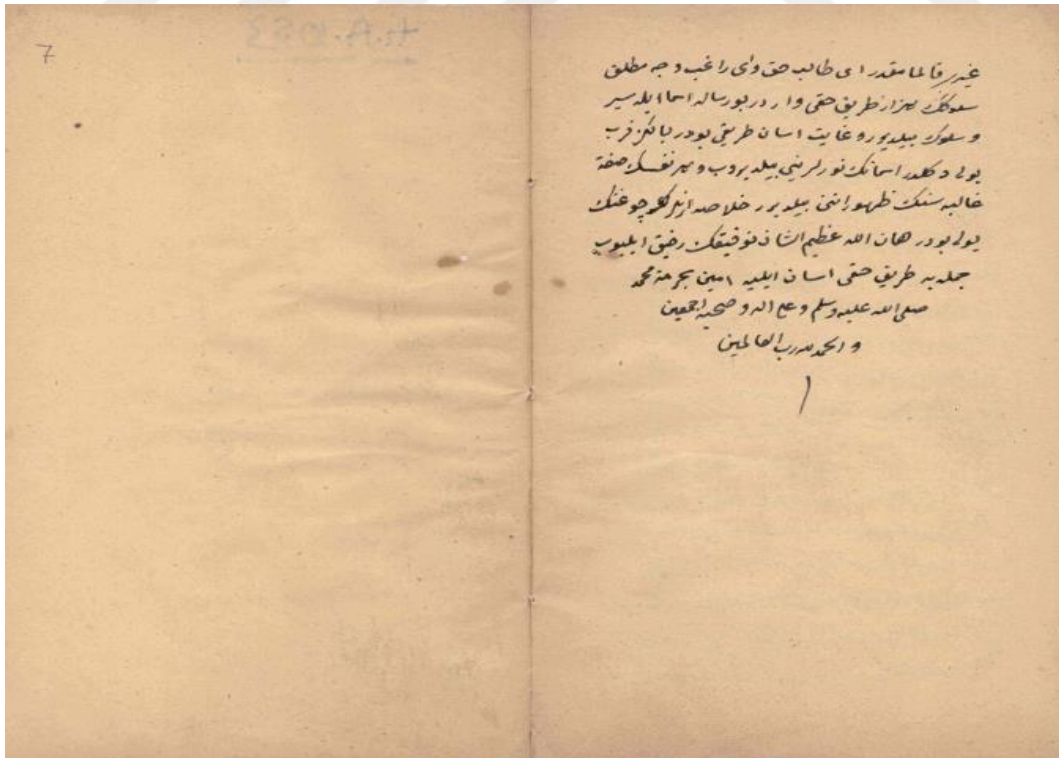 غیر قالمامقدر ای طالب حق وای راغب وجه مطلق
سلوكك هزار طریق حقی واردر بورساله اسما ایله سیر
و سلوك بیلدیرو غایت اسان طریقی بودر یالكز قرب
یولی دكلدر اسمانك نورلرینی بیلدیروب و هر نفسك صفة
غالبه سنك ظهوراتنی بیلدیرر خلاصه چوغنك
یولی بودر همان الله عظیم الشان توفیقك رفیق ایلیوب
جمله یه طریق حقی اسان ایلیه امین بحرمة محمد
صلی الله علیه وسلم و علی اله و صحبه اجمعین
والحمد لله رب العالمین
7